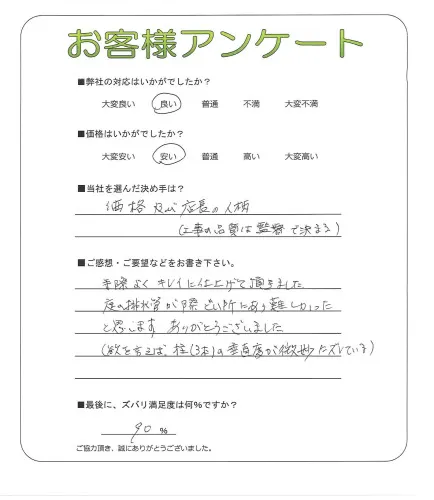 お客様アンケート
■弊社の対応はいかがでしたか？
大変良い 良い 普通 不満 大変不満
■価格はいかがでしたか？
大変安い 安い 普通 高い 大変高い
■当社を選んだ決め手は？
価格及び店長の人柄
(工事の品質は監督で決まる)
■ご感想・ご要望などをお書き下さい。
手際よくキレイに仕上げて頂きました
庭の排水管が際どい所にあり難しかった
と思います ありがとうございました
(欲を言えば、柱(3本)の垂直度が微妙にズレている)
■最後に、ズバリ満足度は何％ですか？
90 ％
ご協力頂き、誠にありがとうございました。